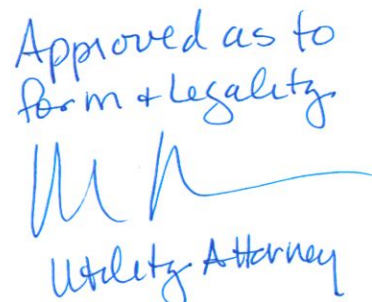 Approved as to
form + Legality
Utility Attorney